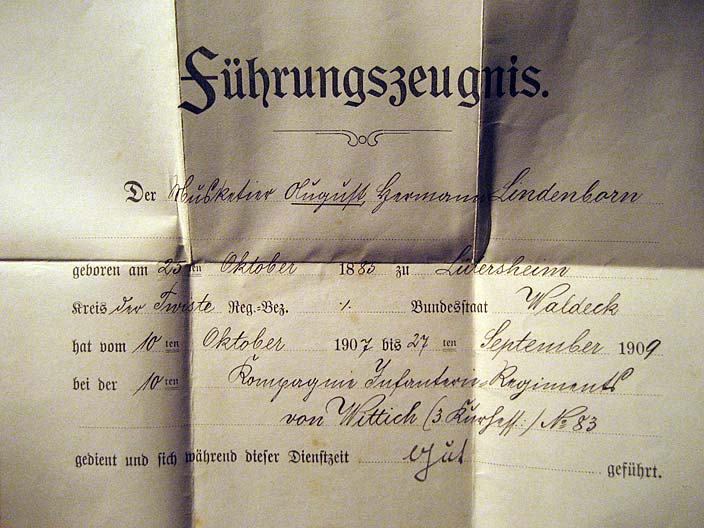 Führungszeugnis.
Der Musketier August Hermann Lindenborn
geboren am 25 ten Oktober 1885 zu Lütersheim
Kreis der Twiste Reg.-Bez. ./. Bundesstaat Waldeck
hat vom 10 ten Oktober 1907 bis 27 ten September 1909
bei der 10 ten Kompagnie Infanterie-Regiments
von Wittich (3 Kurhess:) No 83
gedient und sich während dieser Dienstzeit Gut geführt.